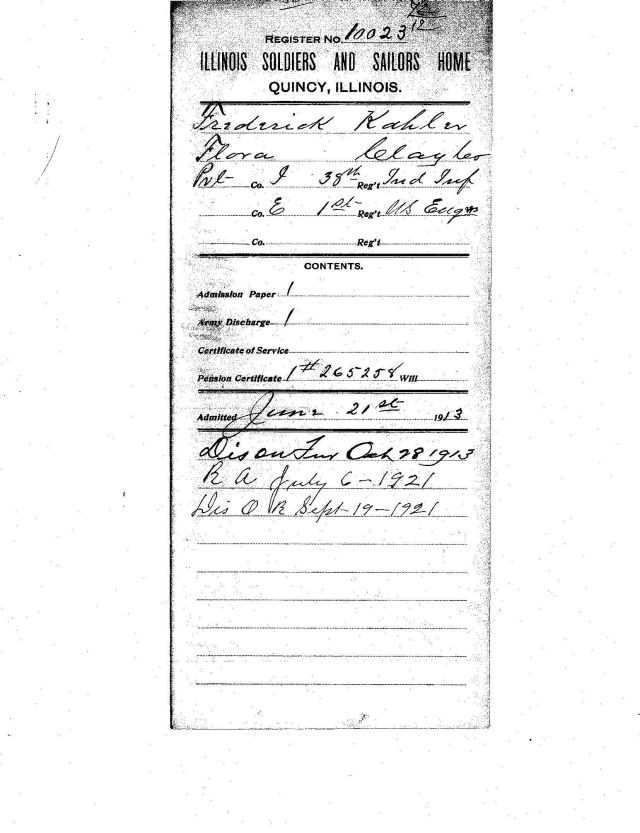 REGISTER No. 10023 12
ILLINOIS SOLDIERS AND SAILORS HOME
QUINCY, ILLINOIS.
Frederick Kahler
Flora
Pvt Co. I 38th Reg't Ind Inf
Co. E 1st Reg't US Engrs
Co. Reg't
CONTENTS.
Admission Paper 1
Army Discharge 1
Certificate of Service
Pension Certificate 1 # 265258 Will
Admitted June 21st 1913
Dis on Fur Oct 28 1913
R A July 6-1921
Dis O R Sept-19-1921